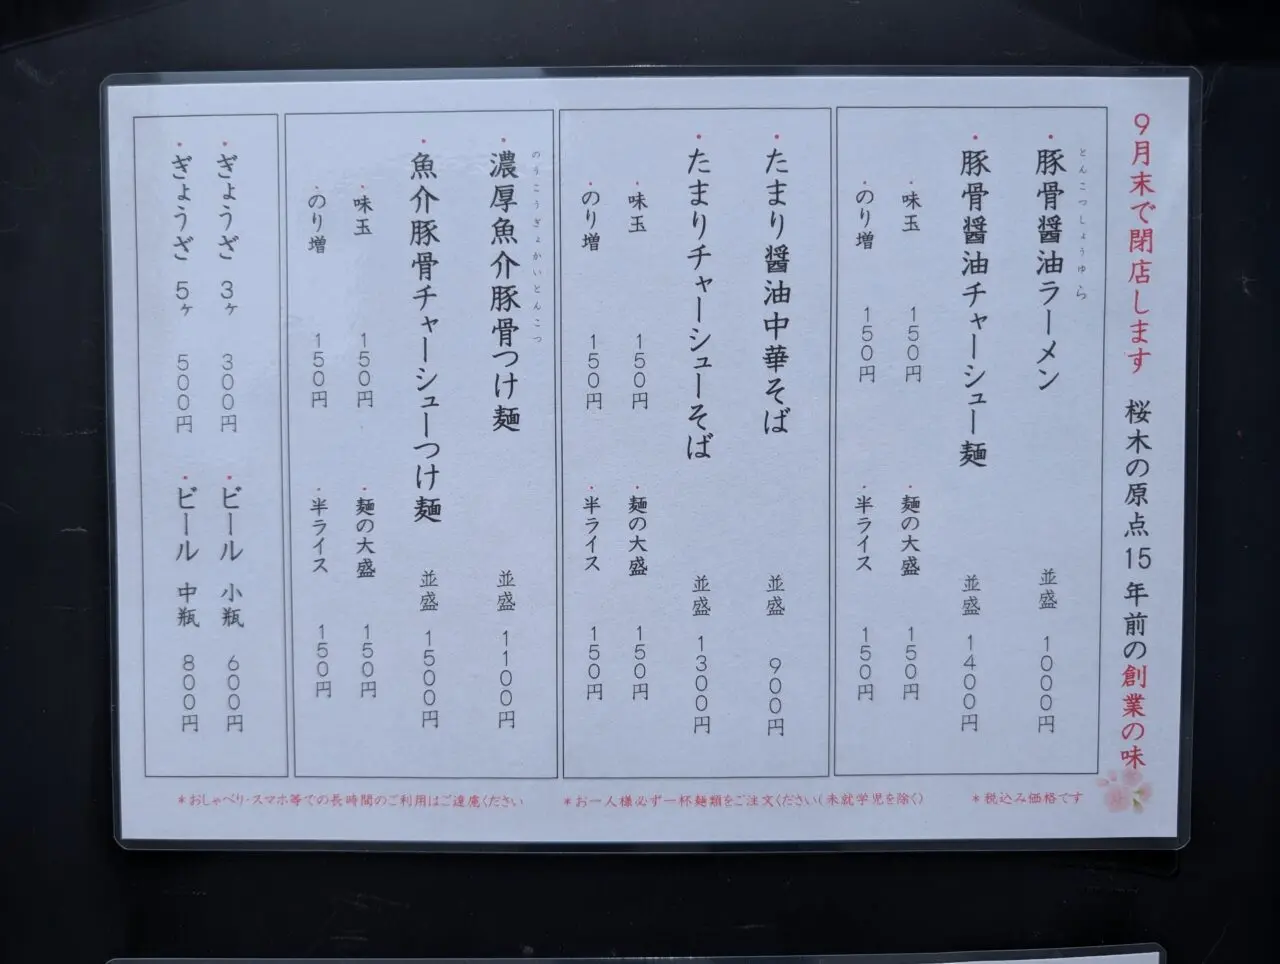 9月末で閉店します 桜木の原点15年前の創業の味
とんこつしょうゆら
・豚骨醤油ラーメン 並盛 1000円
・豚骨醤油チャーシュー麺 並盛 1400円
・味玉 150円 ・麺の大盛 150円
・のり増 150円 ・半ライス 150円
・たまり醤油中華そば 並盛 900円
・たまりチャーシューそば 並盛 1300円
・味玉 150円 ・麺の大盛 150円
・のり増 150円 ・半ライス 150円
のうこうぎょかいとんこつ
・濃厚魚介豚骨つけ麺 並盛 1100円
・魚介豚骨チャーシューつけ麺 並盛 1500円
・味玉 150円 ・麺の大盛 150円
・のり増 150円 ・半ライス 150円
・ぎょうざ 3ヶ 300円 ・ビール 小瓶 600円
・ぎょうざ 5ヶ 500円 ・ビール 中瓶 800円
*おしゃべり・スマホ等での長時間のご利用はご遠慮ください *お一人様必ず一杯麺類をご注文ください(未就学児を除く) *税込み価格です